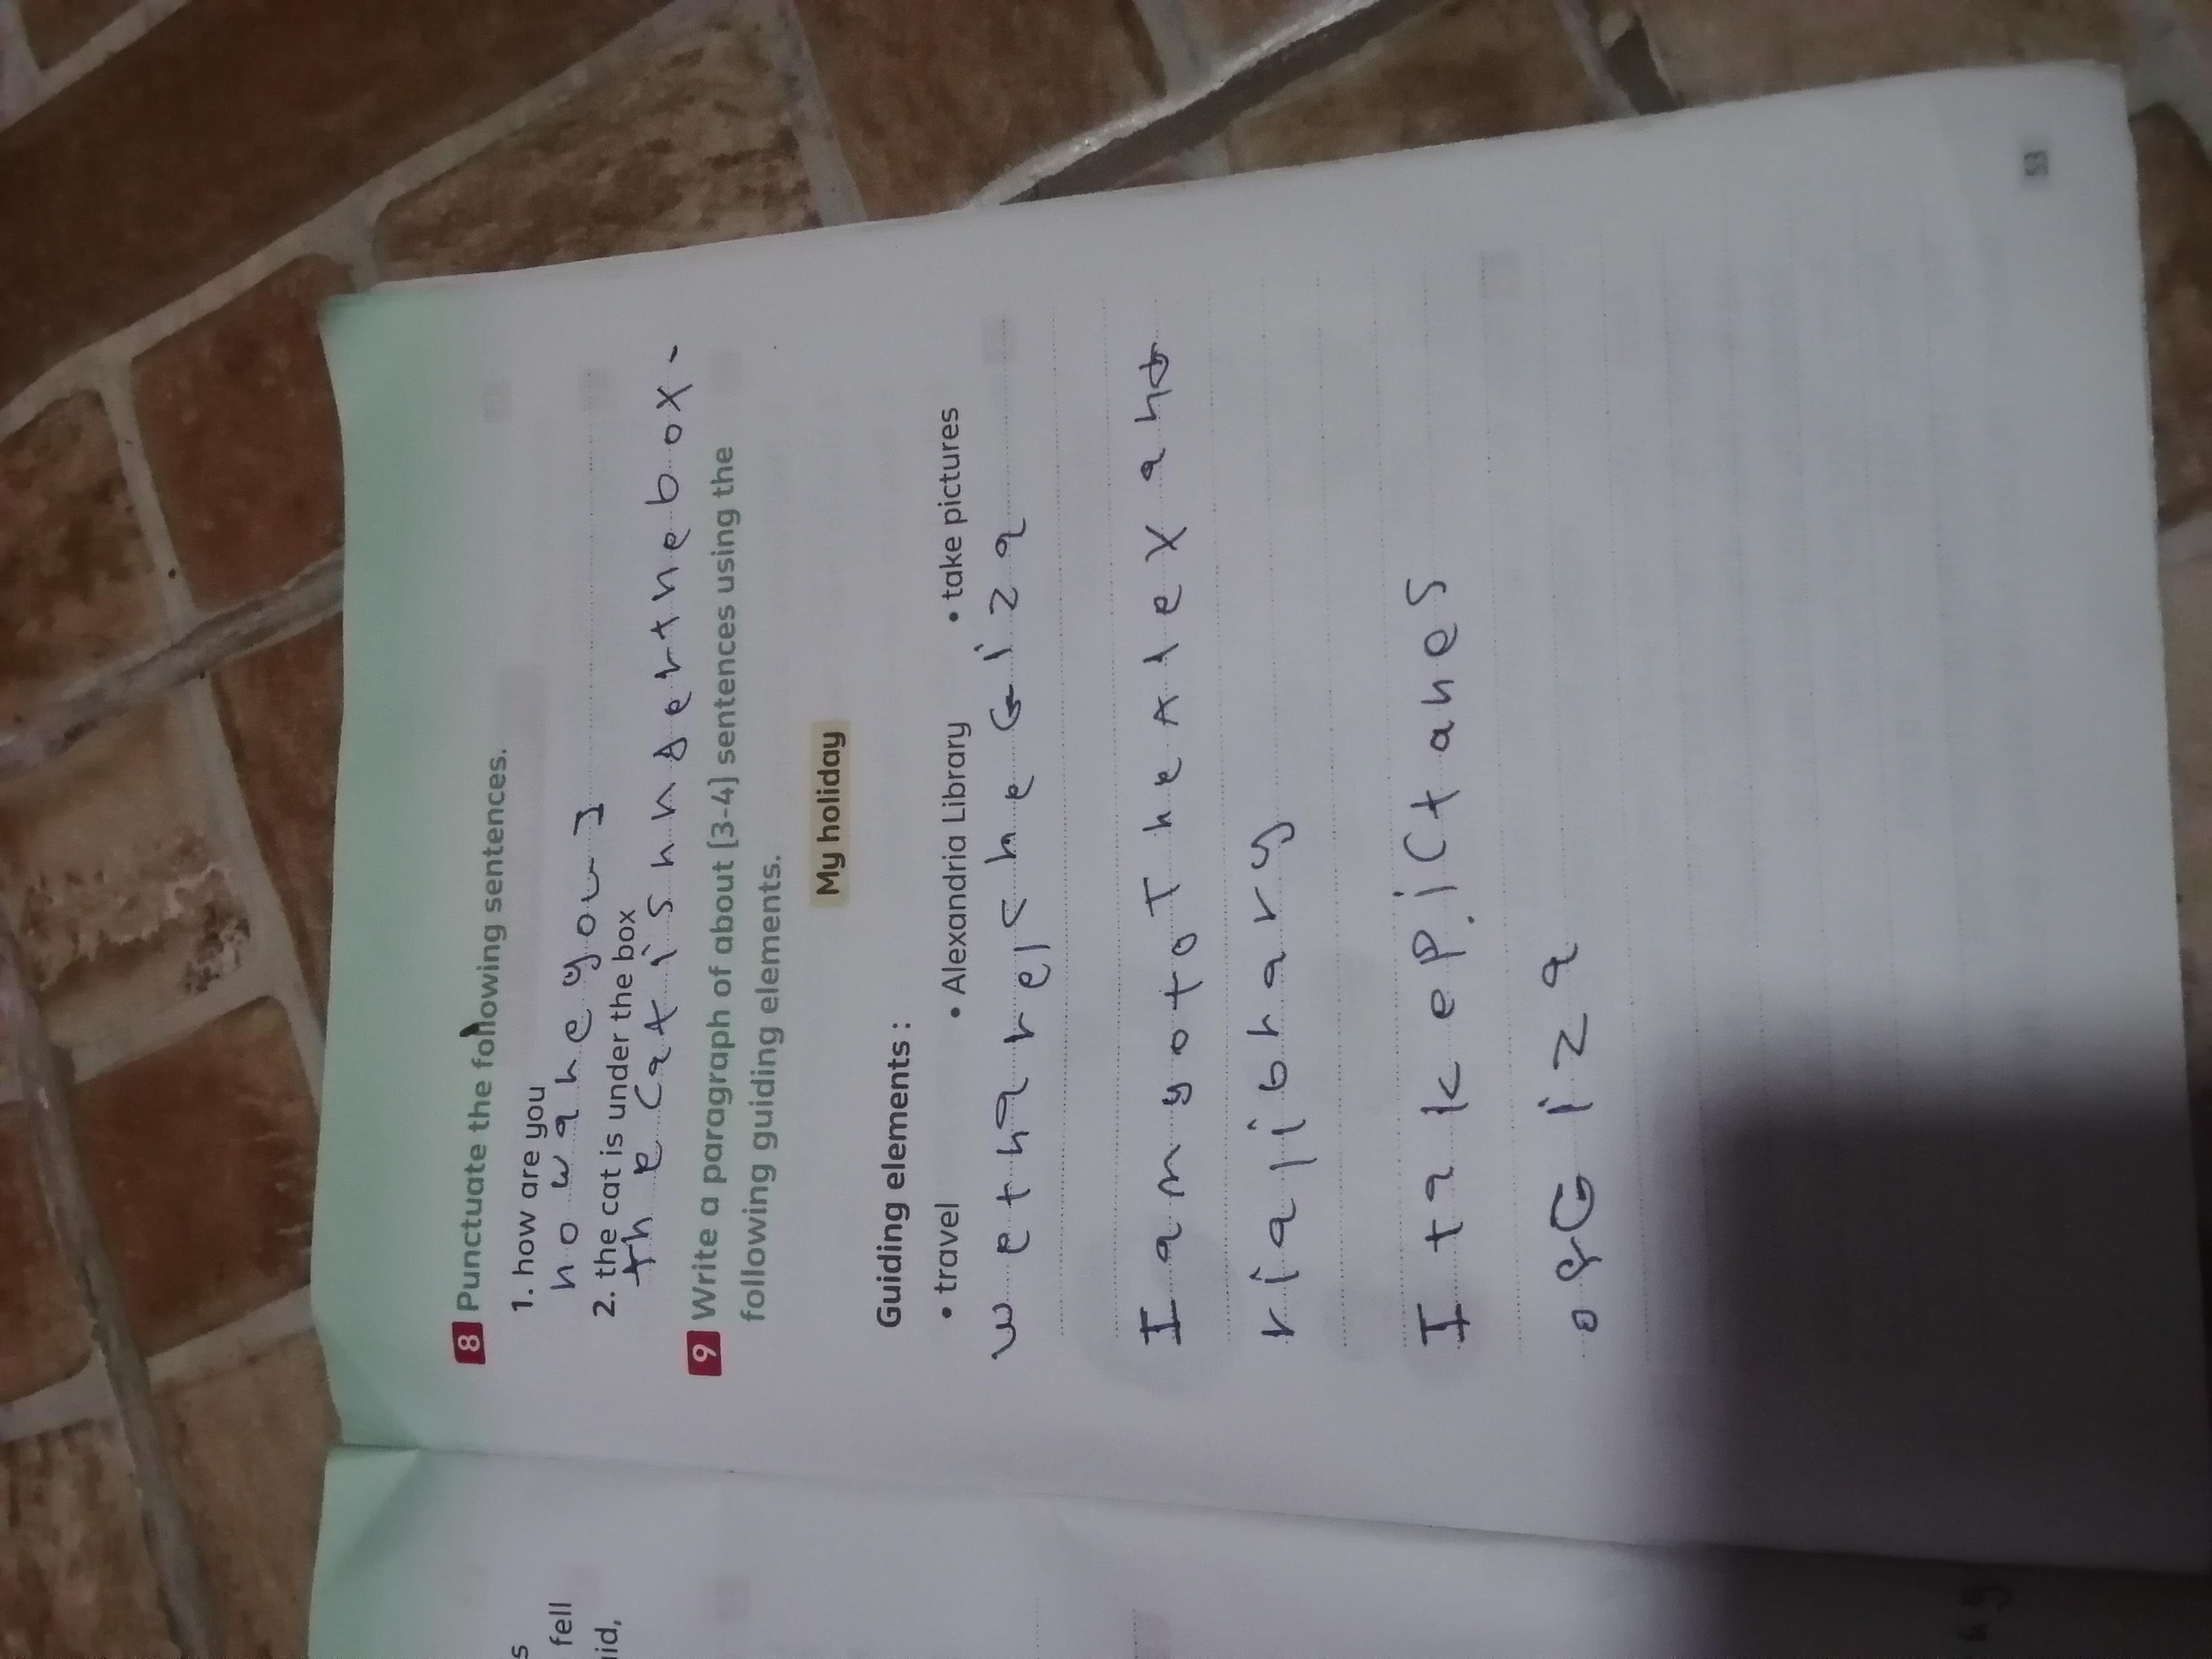 8 Punctuate the following sentences.
1. how are you
how are you
2. the cat is under the box
the cat is under the box.
9 Write a paragraph of about [3-4] sentences using the
following guiding elements.
My holiday
Guiding elements :
• travel • Alexandria Library • take pictures
we the Giza
I am yo to The Alex an
ria library
I take pictanes
of Giza
53
s
fell
uid,